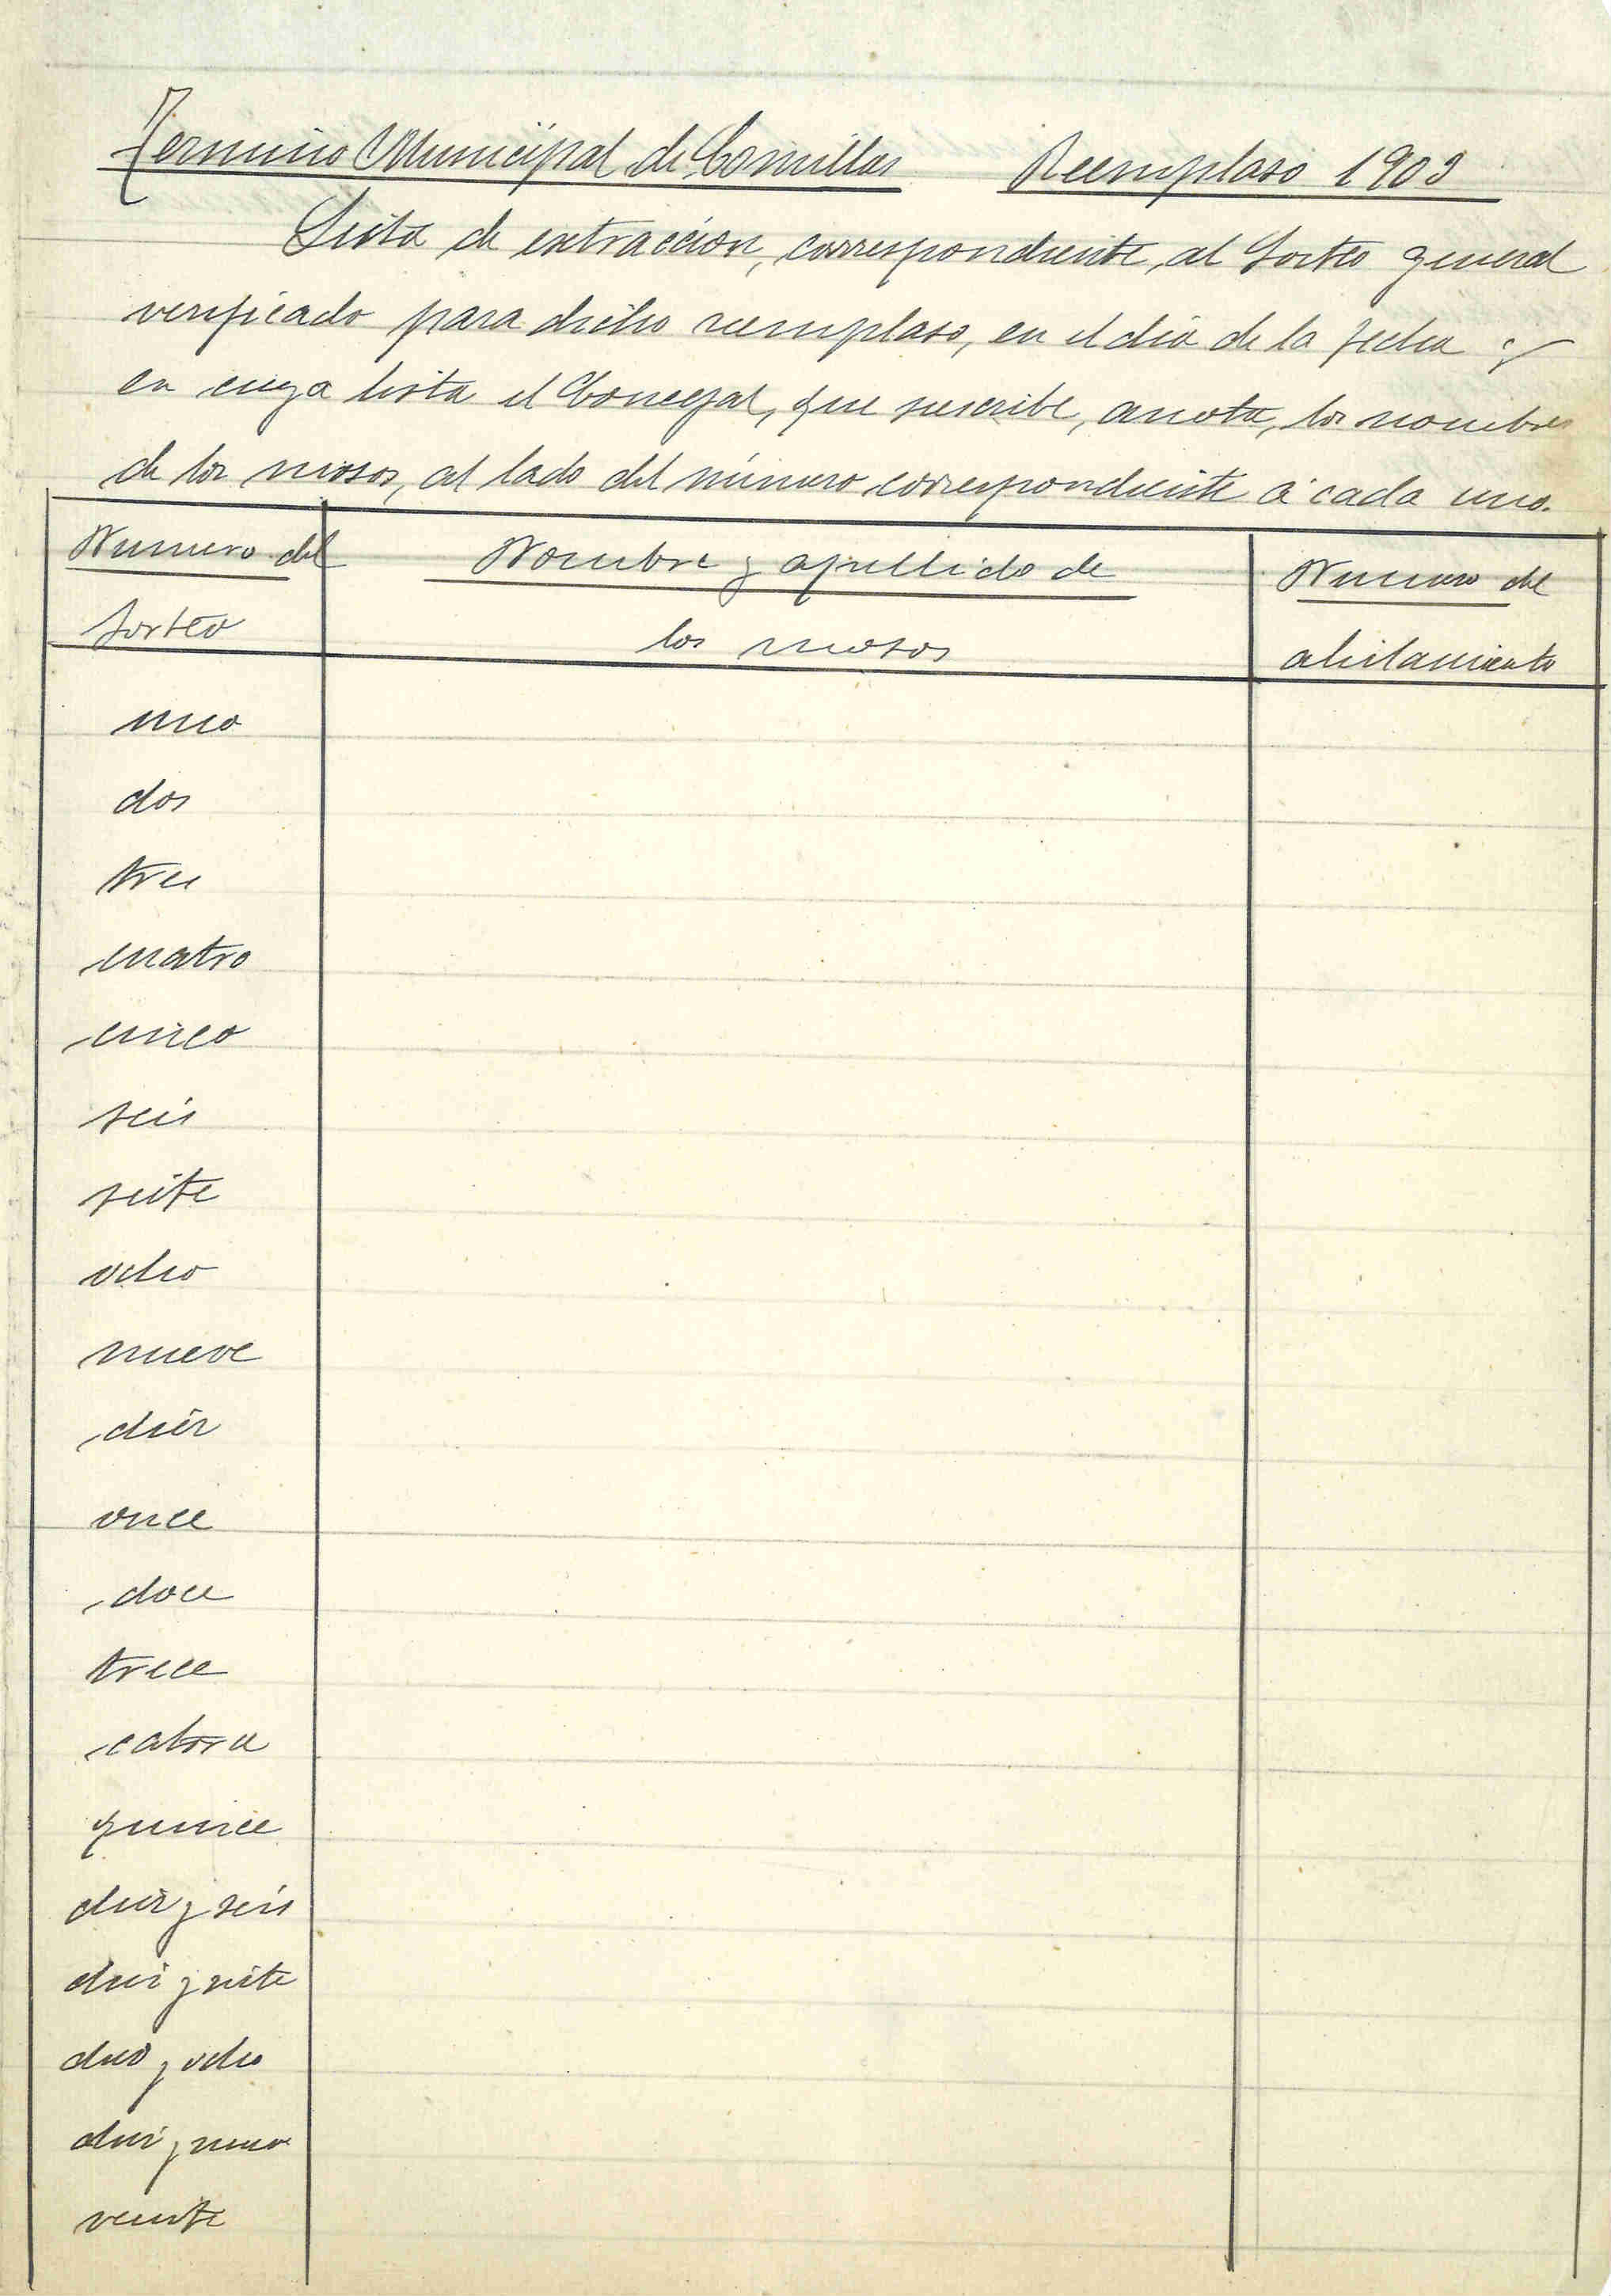 Termino Municipal de Comillas Reemplaso 1903
Lista de extracción, correspondiente, al Sorteo general
verificado para dicho reemplaso, en el dia de la fecha y
en cuya lista el Concejal, que suscribe, anota, los nombres
de los mosos, al lado del número correspondiente á cada uno.
Numero del Nombre y apellido de Numero del
Sorteo los mosos alistamiento
uno
dos
tres
cuatro
cinco
seis
siete
ocho
nueve
diez
once
doce
trece
catorce
quince
diez y seis
diez y siete
diez y ocho
diez y nueve
veinte